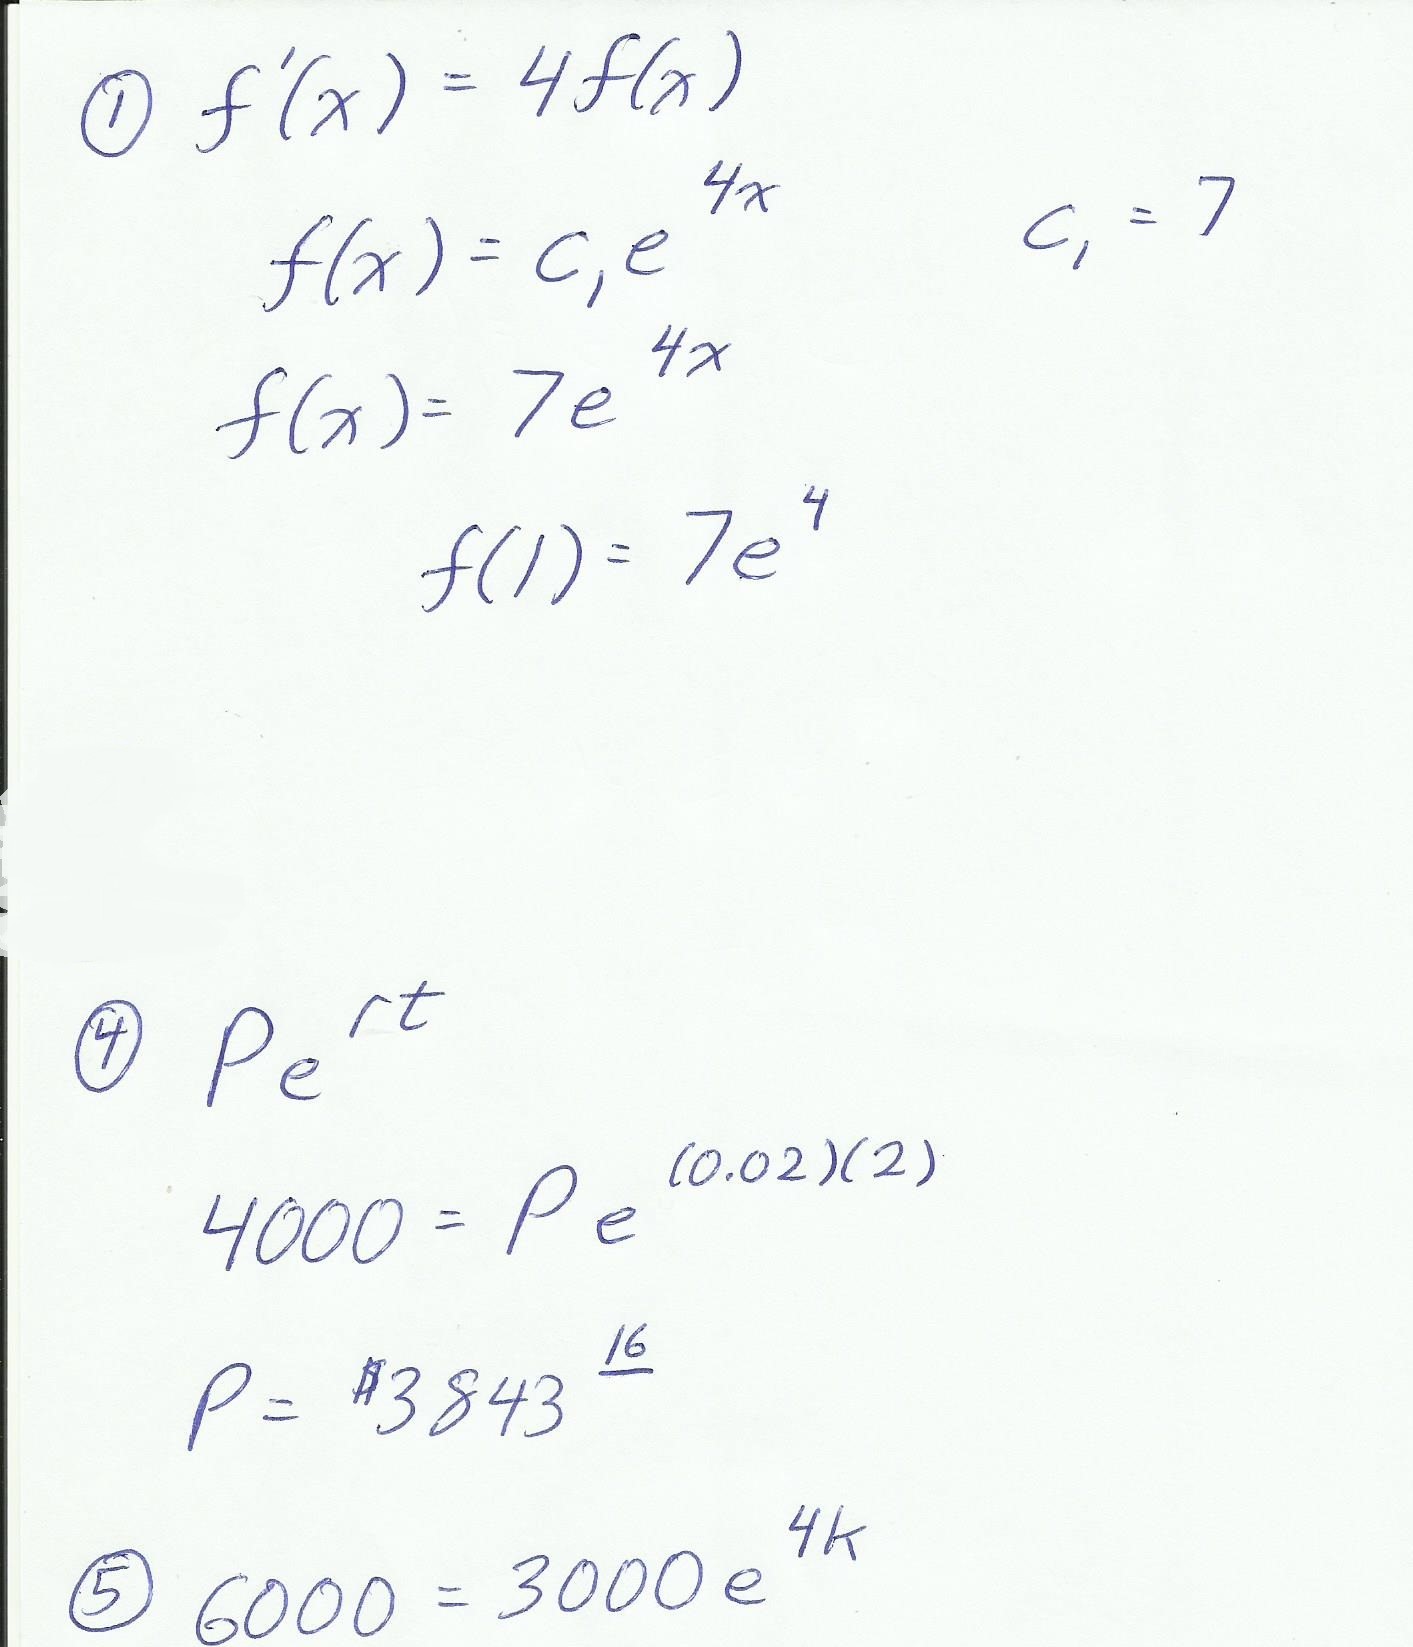 ① f'(x) = 4f(x)
f(x) = c₁e^4x    c₁ = 7
f(x) = 7e^4x
f(1) = 7e^4
④ Pe^rt
4000 = Pe^(0.02)(2)
P = $3843^16
⑤ 6000 = 3000e^4k